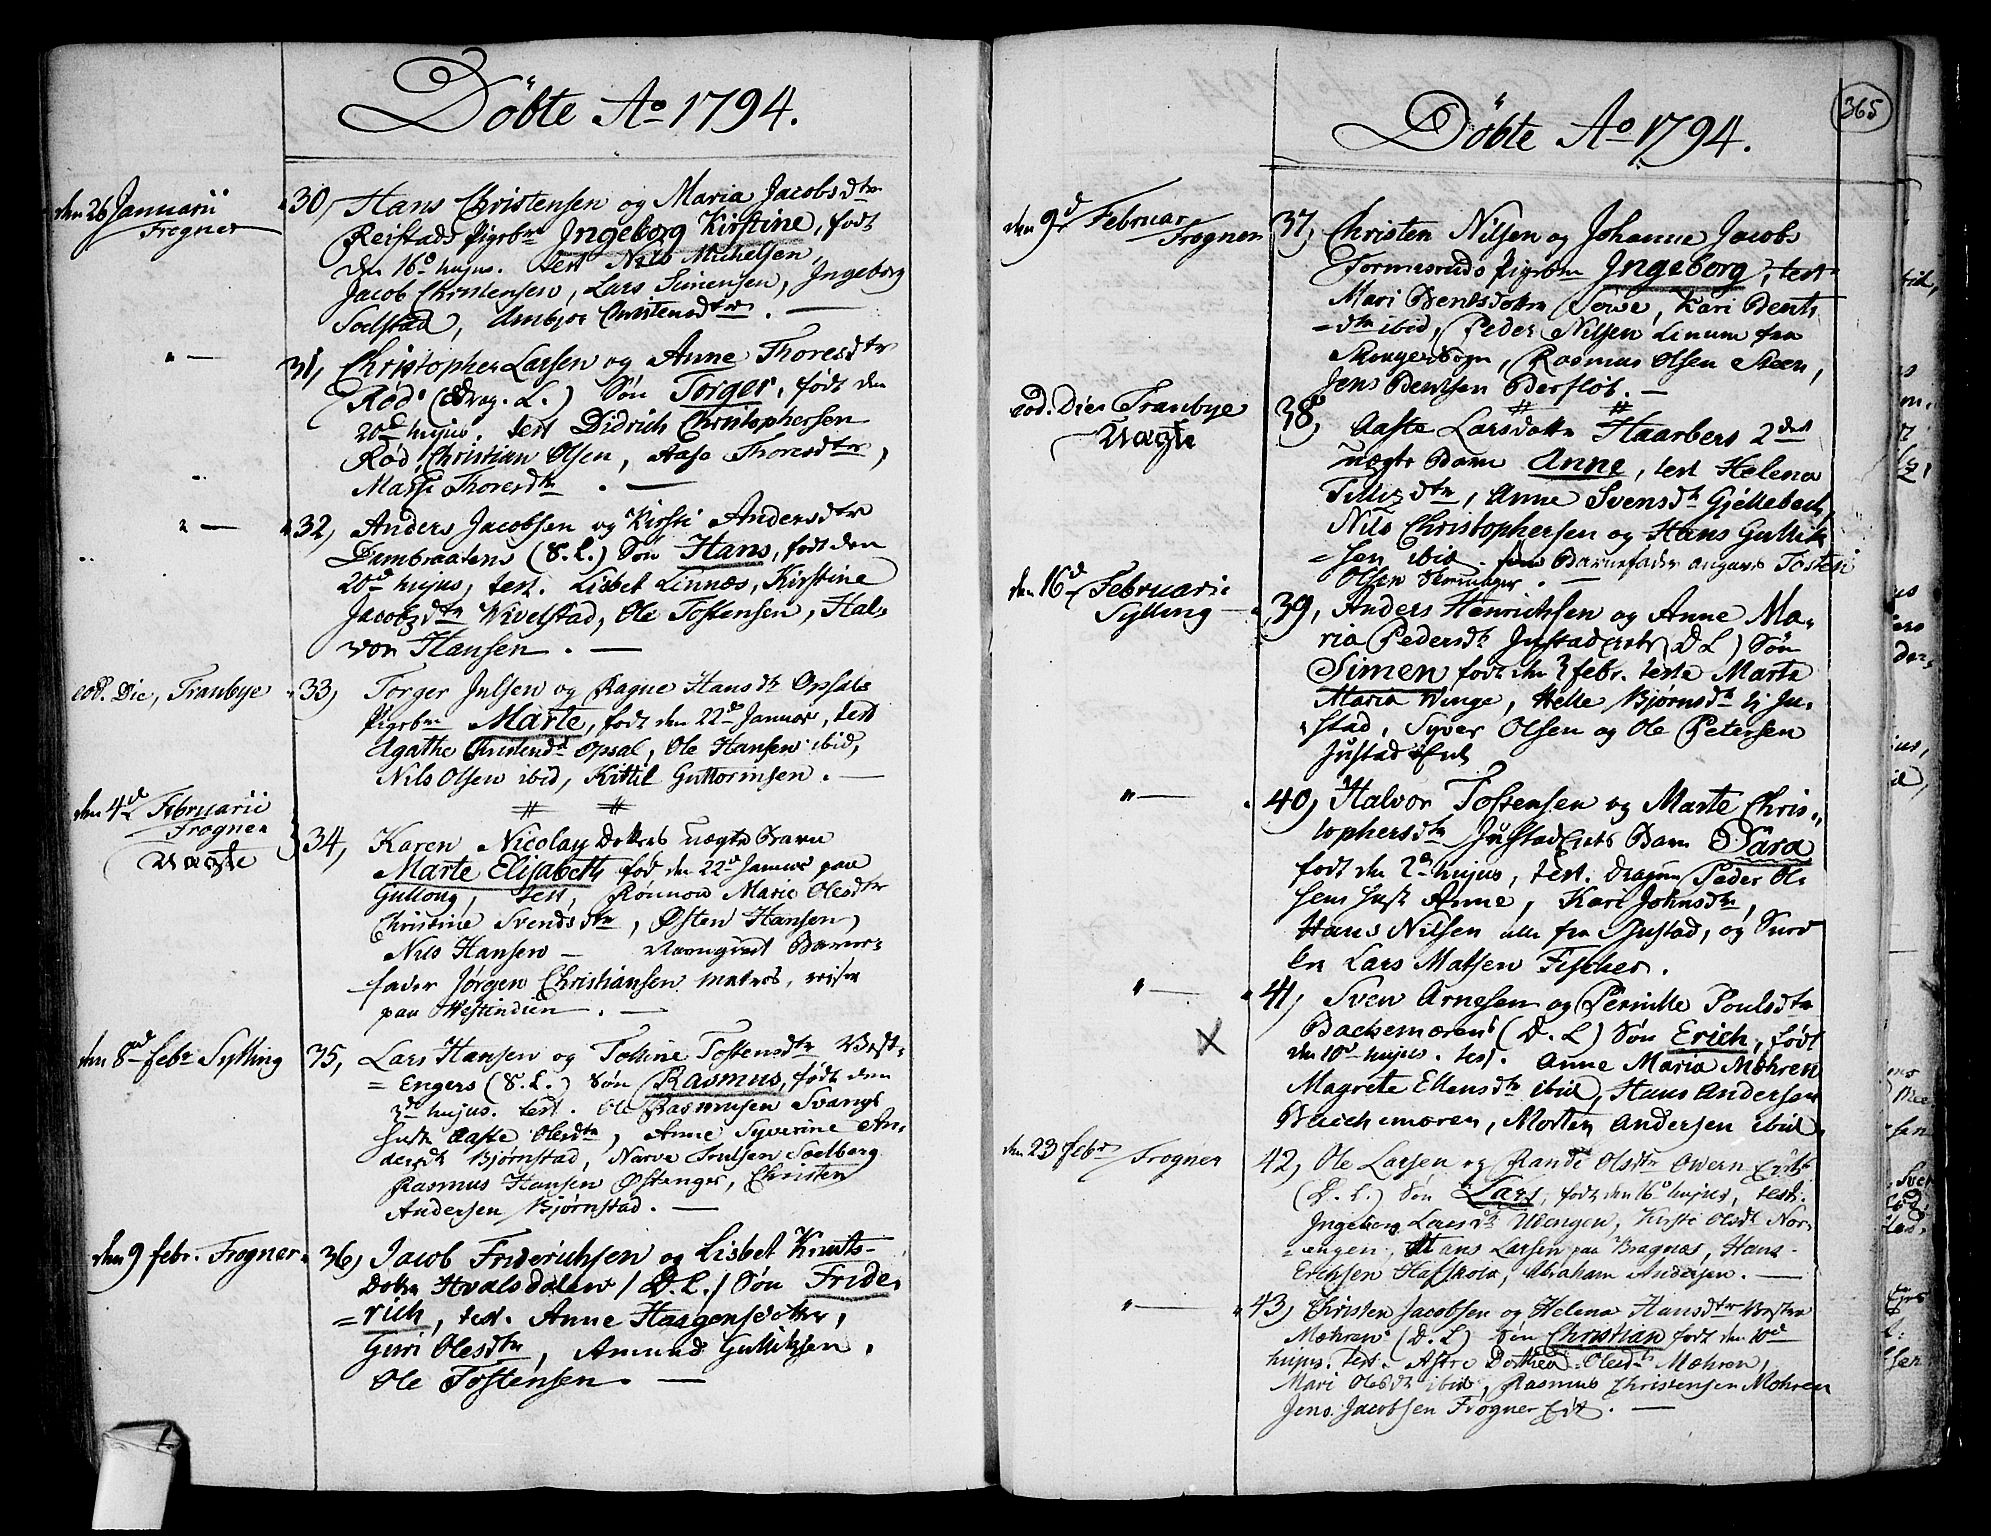 Döbte Ao 1794.
den 26 Januarii
Frogner
30, Hans Christensen og Maria Jacobsdtr
Reistads pigebn Ingeborg Kirstine, født
den 16d hujus. test Nils Michelsen,
Jacob Christensen, Lars Simensen, Ingeborg
Soelstad, Ambjør Christensdtr. —
" — 31, Christopher Larsen og Anne Thoresdtr
Rød (Drag. L.) Søn Torger, født den
20d hujus. test Didrich Christophersen
Rød, Christian Olsen, Aase Thoresdtr,
Massi Thoresdtr. —
" — 32, Anders Jacobsen og Kirsti Andersdtr
Dambraatens (S. L.) Søn Hans, født den
20d hujus, test. Lisbet Linnæs, Kirstine
Jacobsdtr Wivelstad, Ole Tostensen, Hal-
vor Hansen. —
eod. Die, Tranbye 33, Torger Julsen og Ragne Hansdtr Opsals
pigebn Marte, født den 22d Januar, test
Agathe Christensdtr Opsal, Ole Hansen ibid,
Nils Olsen ibid, Kittil Guttormsen. —
den 4d Februarii
Frogner
Uægte
34, Karen Nicolay Dotters uægte Barn
Marte Elisabeth fød den 22d Januar paa
Gulloug, test, Rønnow Marie Olesdtr
Christine Svendsdtr, Østen Hansen,
Nils Hansen — Navngivet Barne-
fader Jørgen Christiansen matros, reiser
paa Westindien. —
den 8d febr Sylling 35, Lars Hansen og Tolline Tostensdtr Vest-
= Engers (S. L.) Søn Rasmus, født den
3d hujus. test. Ole Rasmusen Svangs
hustr Aaste Olesdtr, Anne Syverine An-
dersdtr Bjørnstad, Narve Poulsen Soelberg
Rasmus Hansen Østenger, Christen
Andersen Bjørnstad. —
den 9 febr. Frogner 36, Jacob Friderichsen og Lisbet Knuts-
Dotter Hvalsdalen / D. L. / Søn Fride-
= rich, test. Anne Haagensdotter,
Guri Olesdtr, Amund Gulliksen,
Ole Tostensen. —
365
Döbte Ao 1794.
den 9d Februar
Frogner
37, Christen Nilsen og Johanne Jacobs
Tormesruds pigebn Ingeborg, test
Mari Bentsdotter Sowe, Kari Bents
= dtr ibid, Peder Nilsen Linum fra
Skouger Sogn, Rasmus Olsen Steen,
Jens Bentsen Berfløt. —
eod. Die Tranbye
Uægte
38, Aaste Larsdotter Haarbers 2det
uægte Barn Anne, test Helena
Tilluzdtr, Anne Svensdtr Gjellebech,
Nils Christophersen og Hans Gullik
= sen ibid. Barnefader angavs Tosten
Olsen
den 16d Februarii
Sylling
39, Anders Henrichsen og Anne Ma-
ria Pedersdtr Justad (D L) Søn
Simen født den 3 febr. teste Marte
Maria Winge, Helle Bjørnsdtr Ju-
stad, Syver Olsen og Ole Petersen
Justad Eiet
" — 40, Halvor Tostensen og Marte Chris-
tophersdtr Justad Eiets Barn Sara
født den 2d hujus, test. Dragun Peder Ol-
sens hust Anne, Kari Johnsdtr,
Hans Nilsen alle fra Justad, og
Lars Matsen Fischer.
" — 41, Sven Arnesen og Pernille Poulsdtr
Bachemoren (D. L) Søn Erich, født
den 10d hujus. test. Anne Maria Mohren
Magrete Ellensdtr ibid, Hans Andersen
Bachemoren, Morten Andersen ibid.
den 23 febr Frogner 42, Ole Larsen og Randi Olsdtr Owern Eiet
(D. L.) Søn Lars, født den 16d hujus, test.
Ingeborg Larsdtr Wengen, Kirsti Olsdtr Nor-
= engen, Hans Larsen paa Bragnæs, Hans
Erichsen Hafskold, Abraham Andersen. —
" — 43, Christen Jacobsen og Helena Hansdtr Vester
Mæhren (D. L) Søn Christian født den 10d
hujus. test. Astri Dorthea Olesdtr Mæhren,
Mari Olesdtr ibid, Rasmus Christensen Mohren
Jens Jacobsen Frogner Eiet. —